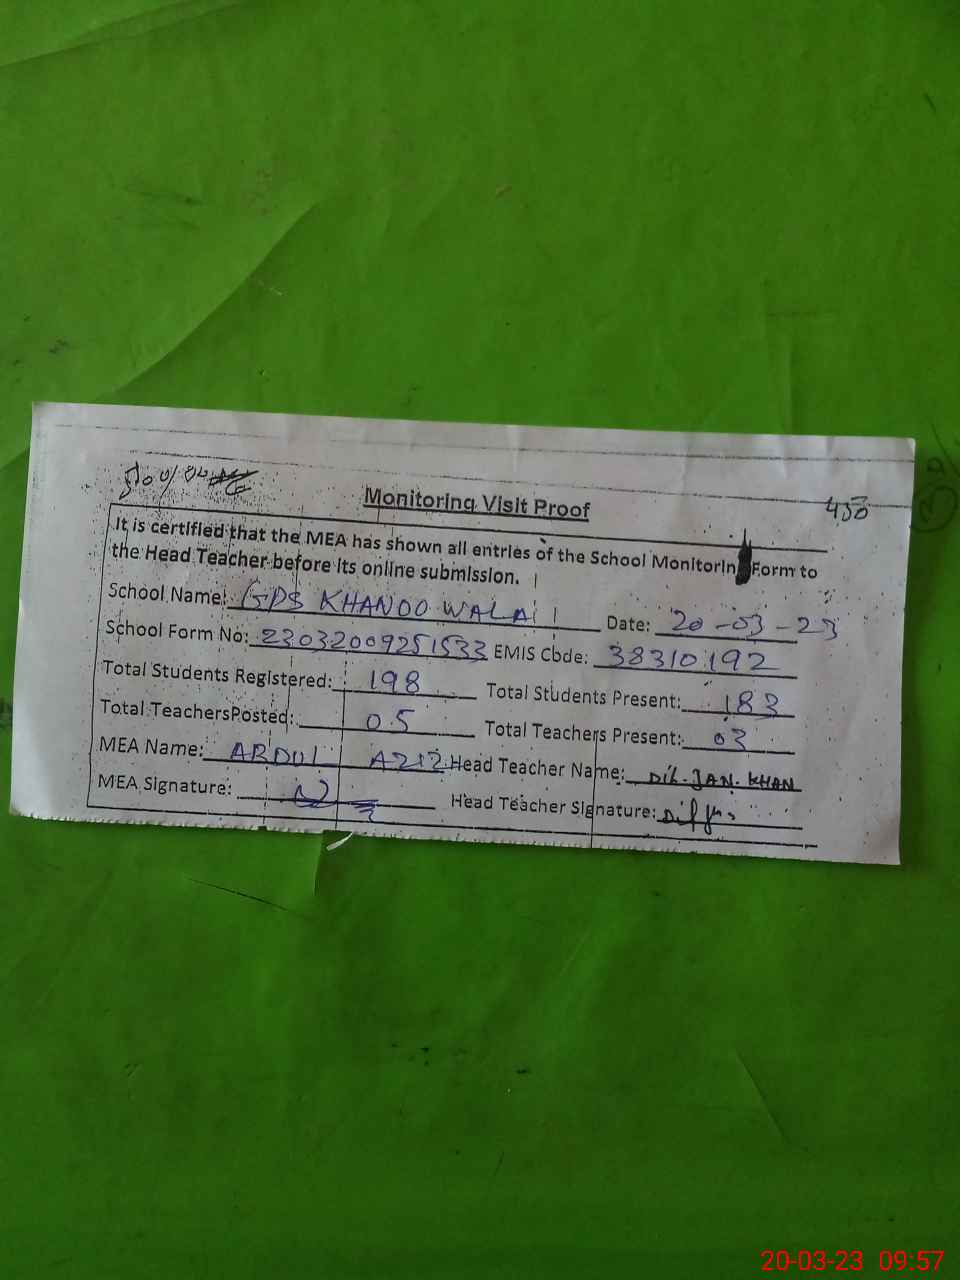 450
Monitoring Visit Proof
It is certified that the MEA has shown all entries of the School Monitoring Form to
the Head Teacher before its online submission.
School Name: GPS KHANOO WALA Date: 20-03-23
School Form No: 23032009251533 EMIS Code: 38310192
Total Students Registered: 198 Total Students Present: 183
Total TeachersPosted: 05 Total Teachers Present: 03
MEA Name: ABDUL AZIZ Head Teacher Name: DIL. JAN. KHAN
MEA Signature: Head Teacher Signature:
20-03-23 09:57